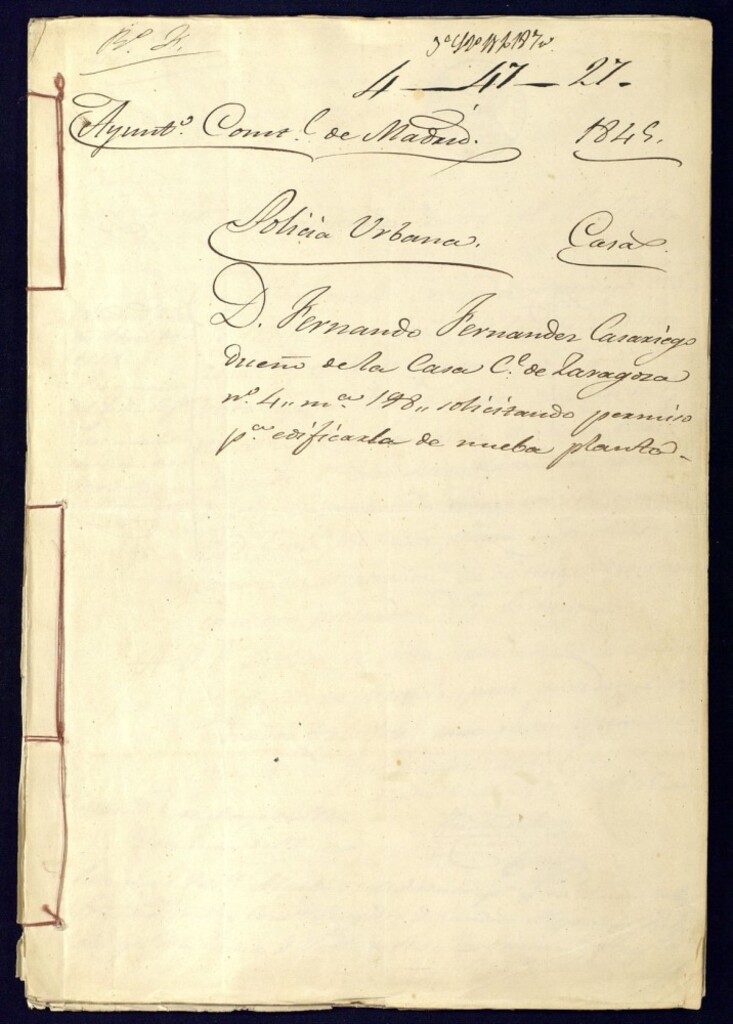 4 — 47 — 27.
Ayunt.º Const.l de Madrid. 1845.
Policia Urbana. Casa.
D. Fernando Fernandez Casariego
dueño de la Casa C.e de Zaragoza
n.º 4 „ m.a 198 „ solicitando permiso
p.a edificarla de nueba planta -